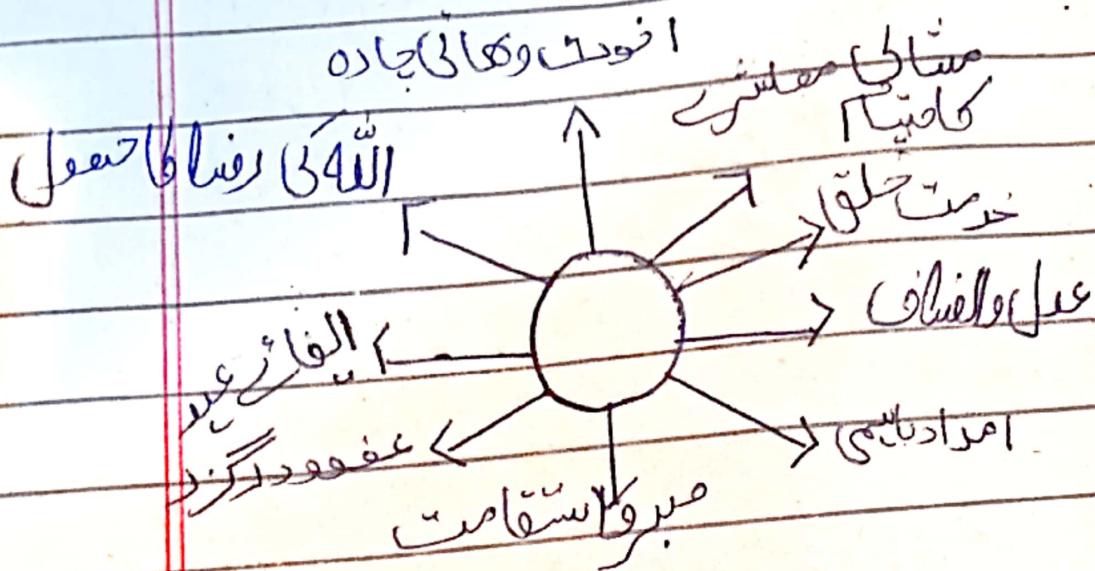 اخوت و بھائی چارہ
مثالی معاشرے
کا قیام
اللہ کی رضا کا حصول
خدمت خلق
عدل و انصاف
ایفائے عہد
امداد باہمی
عفو و درگزر
صبر و استقامت